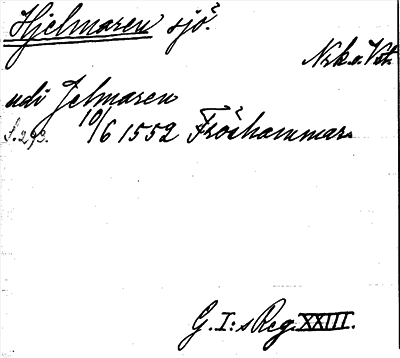 Hjelmaren sjö.
Nrk. o. Vstm.
udi Jelmaren
S. 293. 10/6 1552 Fröshammar
G. I:s Reg. XXIII.